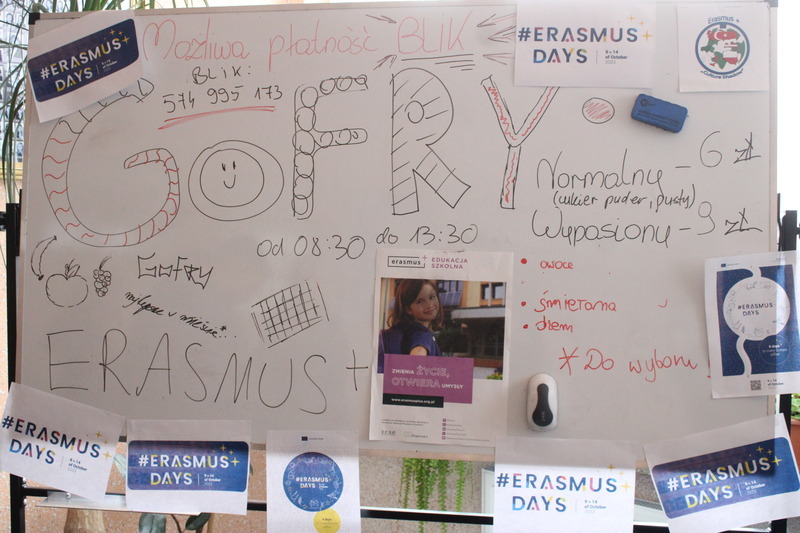 #ERASMUS+
DAYS
Możliwa płatność BLIK
BLIK:
574 995 173
#ERASMUS+
DAYS
9 - 14
of October
2023
Erasmus +
"Culture Shadow"
GOFRY
Normalny - 6 zł
(cukier puder, pusty)
Wyposiony - 9 zł
od 08:30 do 13:30
• owoce
• śmietana
• dżem
* Do wyboru
Gofry
najlepsze w mieście...
ERASMUS +
erasmus+
EDUKACJA
SZKOLNA
ZMIENIA ŻYCIE,
OTWIERA UMYSŁY
www.erasmusplus.org.pl
#ERASMUS
DAYS
#ERASMUS+
DAYS
9 - 14
of October
2023
#ERASMUS+
DAYS
9 - 14
of October
2023
#ERASMUS
DAYS
#ERASMUS+
DAYS
9 - 14
of October
2023
#ERASMUS+
DAYS
9 - 14
of October
2023